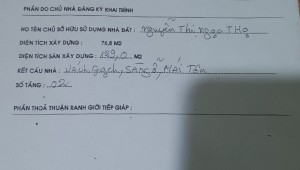 PHẦN DO CHỦ NHÀ ĐĂNG KÝ KHAI TRÌNH
HỌ TÊN CHỦ SỞ HỮU SỬ DỤNG NHÀ ĐẤT : Nguyễn Thị Ngọc Thọ
DIỆN TÍCH XÂY DỰNG : 76,8 M2
DIỆN TÍCH SÀN XÂY DỰNG : M2
KẾT CẤU NHÀ : Vách Gạch, Sàn gỗ, Mái Tôn
SỐ TẦNG : 02
PHẦN THOẢ THUẬN RANH GIỚI TIẾP GIÁP :